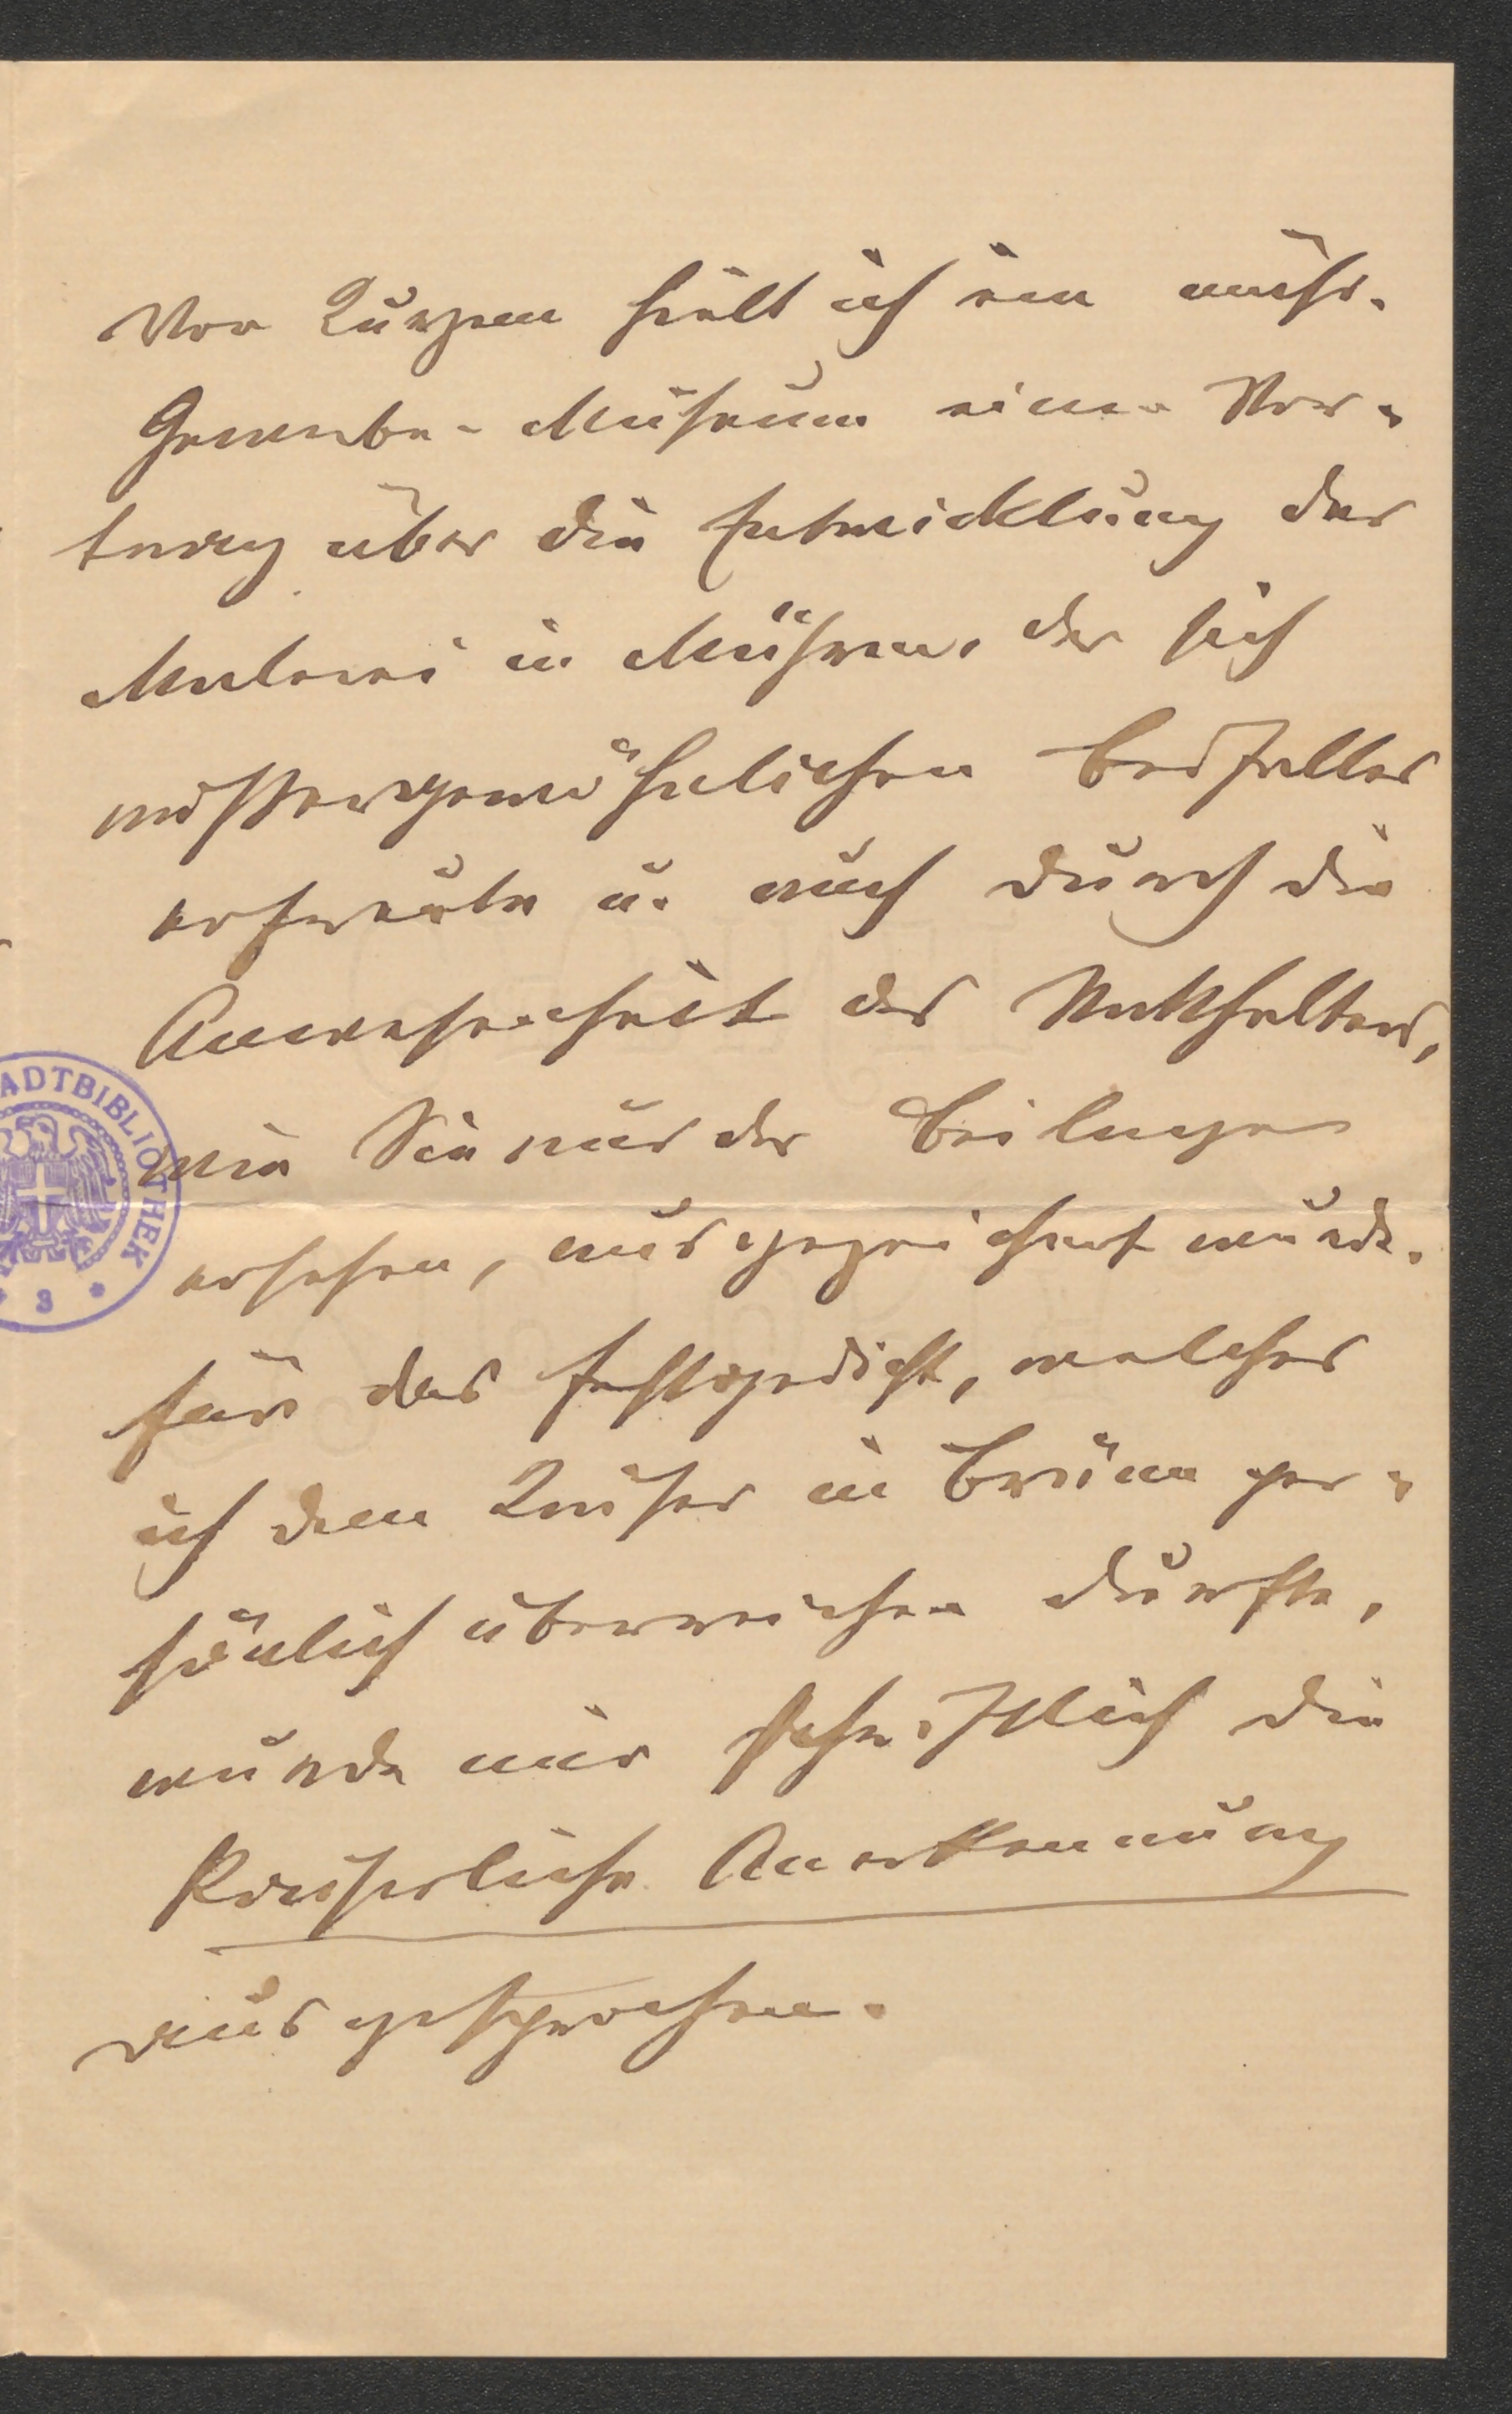 Vor Kurzem hielt ich im mähr.
Gewerbe-Museum einen Vor-
trag über die Entwicklung der
Malerei in Mähren, der sich
außergewöhnlichen Beifalles
erfreute u. auch durch die
Anwesenheit des Statthalters,
wie Sie aus der Beilage
ersehen, ausgezeichnet wurde.
Für das Festgedicht, welches
ich dem Kaiser in Brünn per-
sönlich überreichen durfte,
wurde mir schriftlich die
Kaiserliche Anerkennung
ausgesprochen.
ADTBIBLIOTHEK
3